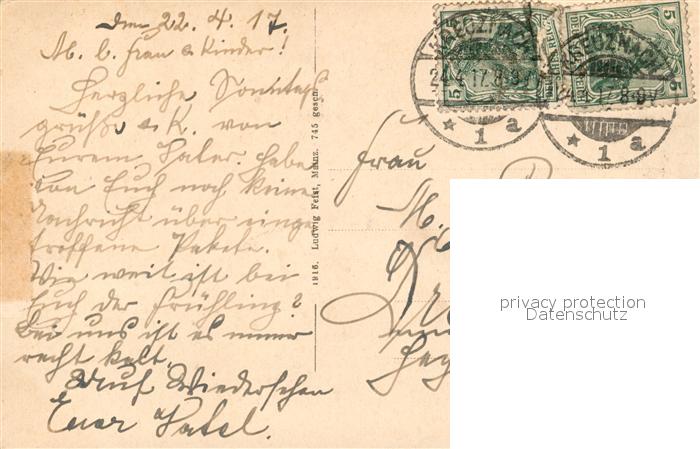 Den 22. 4. 17.
M. l. Frau & Kinder!
Herzliche Sonntags
grüße & K. von
Eurem Vater. Habe
von Euch noch keine
Nachricht über einge
troffene Pakete.
Wie weit ist bei
Euch der Frühling?
Bei uns ist es immer
recht kalt.
Auf Wiedersehen
Euer Vater.
1916. Ludwig Feist, Mainz. 745 gesch.
KREUZNACH
24.4.17.8-9V
* 1 a
KREUZNACH
17.8-9V
* 1 a
5
5
5
Frau
M.
privacy protection
Datenschutz